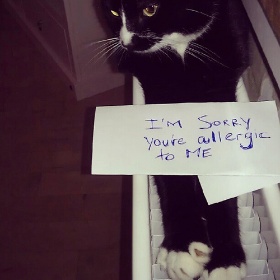 I'M SORRY
you're allergic
to ME